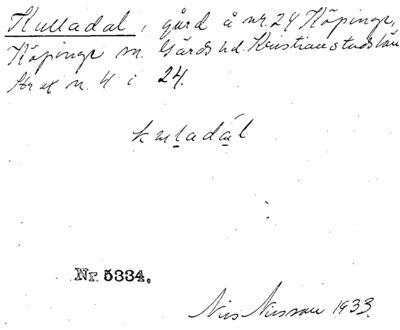 Kulladal, gård å nr 24 Köpinge,
Köpinge sn. Gärds hd. Kristianstads län
Str ax n. 4 i 24.
kuladál
Nr. 5334.
Nils Nilsson 1933.